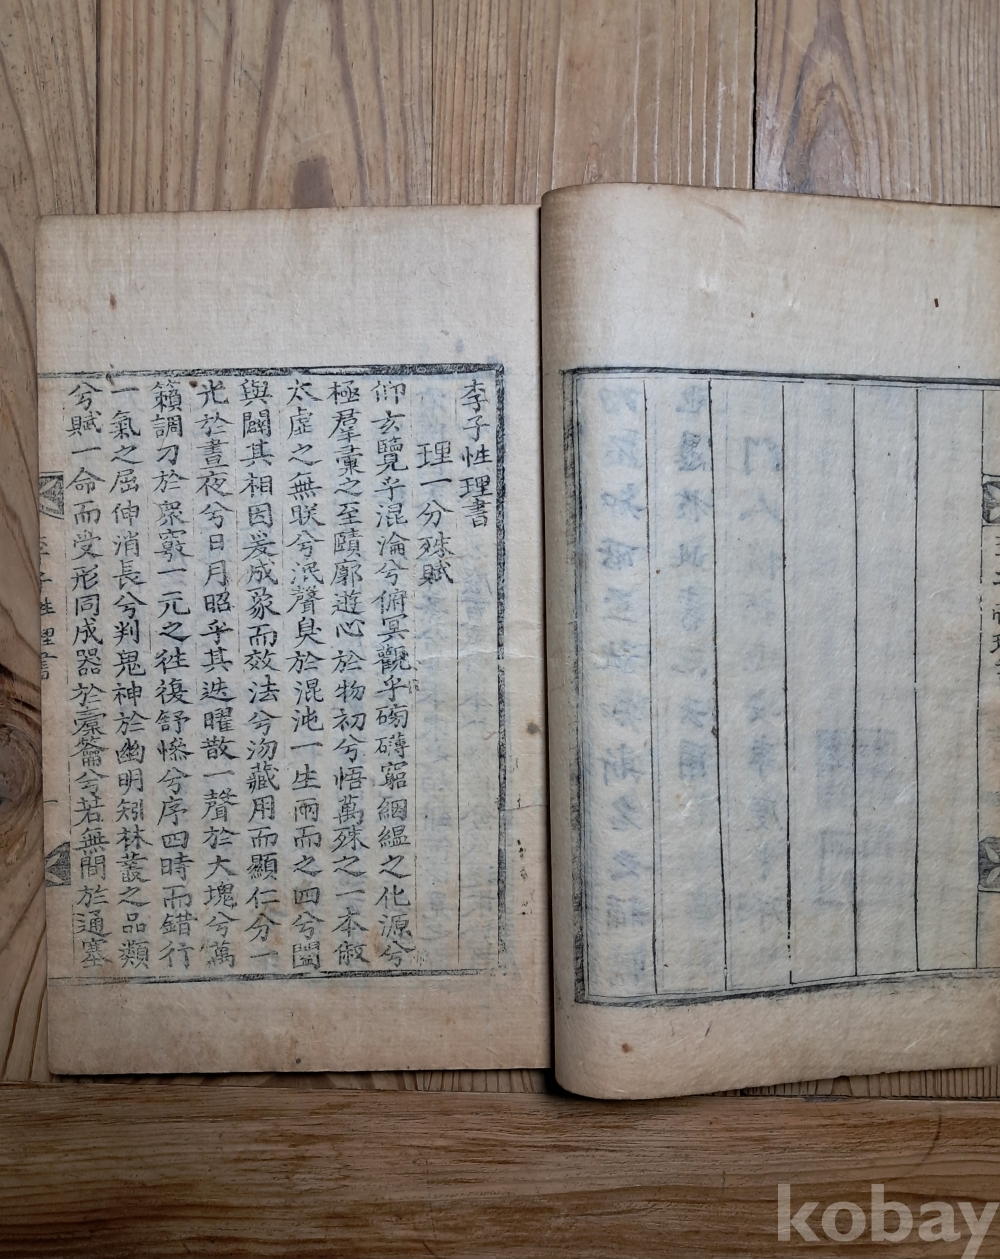 李子性理書
理一分殊賦
仰玄覽乎混淪兮俯冥觀乎磅礡窮絪縕之化源兮
極羣彙之至賾廓遊心於物初兮悟萬殊之一本俶
太虛之無眹兮泯聲臭於混沌一生兩而之四兮闔
與闢其相因爰成象而效法兮沕藏用而顯仁分一
光於晝夜兮日月昭乎其迭曜散一聲於大塊兮萬
籟調刁於衆竅一元之徃復舒慘兮序四時而錯行
一氣之屈伸消長兮判鬼神於幽明矧林叢之品類
兮賦一命而受形同成器於槖籥兮若無間於通塞
李子性理書
一
kobay